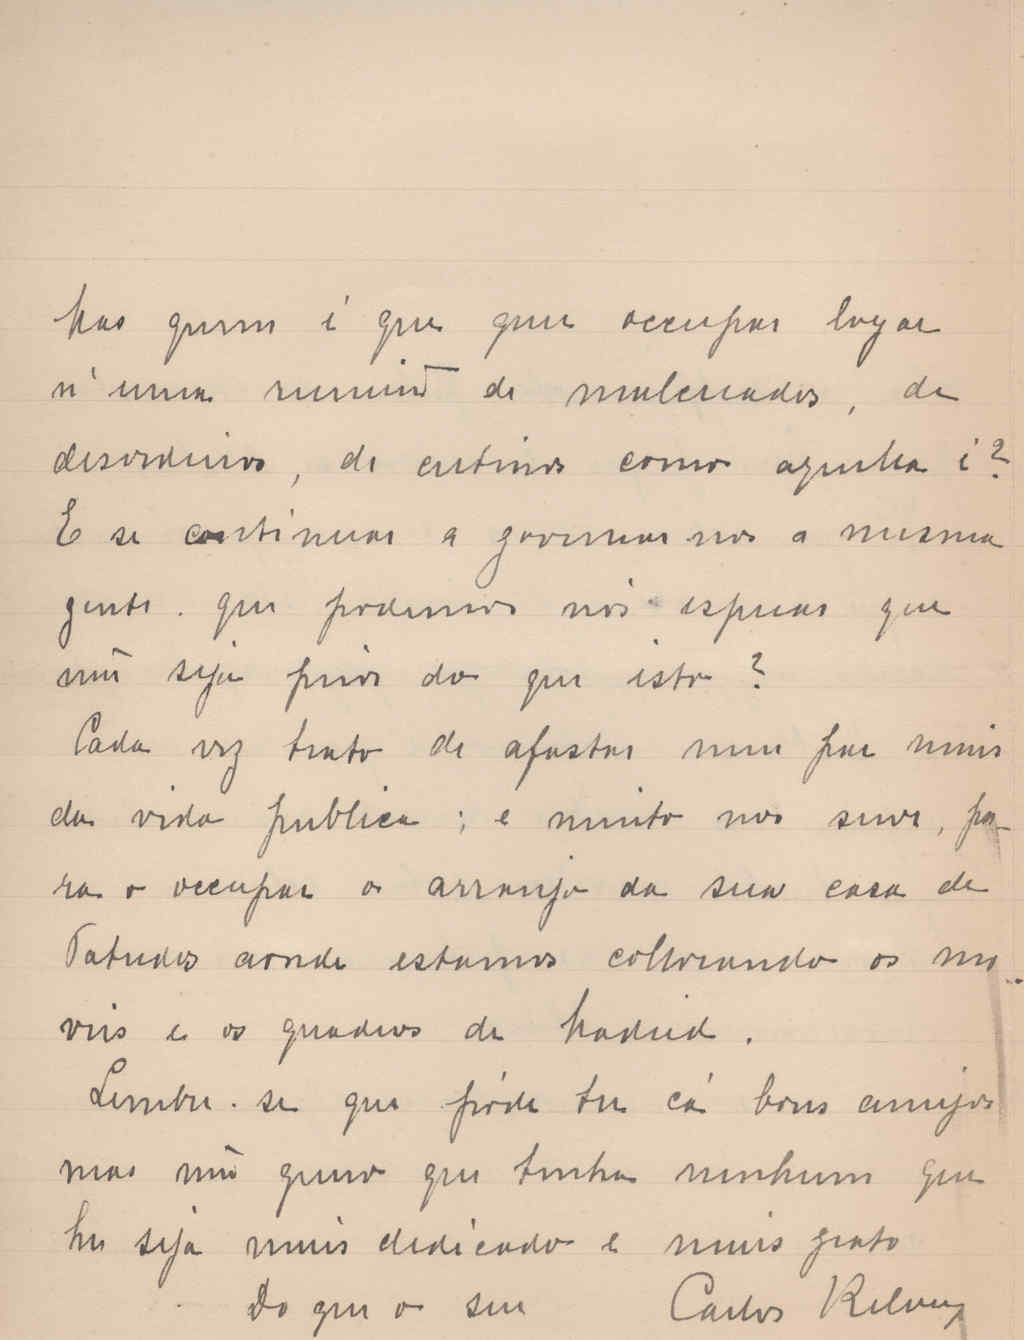 Mas quem é que quer occupar logar
n'uma reunião de malcriados, de
desordeiros, de cretinos como aquella é?
E se continuar a governar-nos a mesma
gente. que podemos nós esperar que
não seja peior do que isto?
Cada vez trato de afastar-me para mais
da vida publica; e muito nos serve, pa-
ra o occupar o arranjo da sua casa de
Patudos aonde estamos collocando os mo-
veis e os quadros de Madrid.
Lembre-se que póde ter cá bons amigos
mas não quero que tenha nenhum que
lhe seja mais dedicado e mais grato
Do que o seu Carlos Relvas